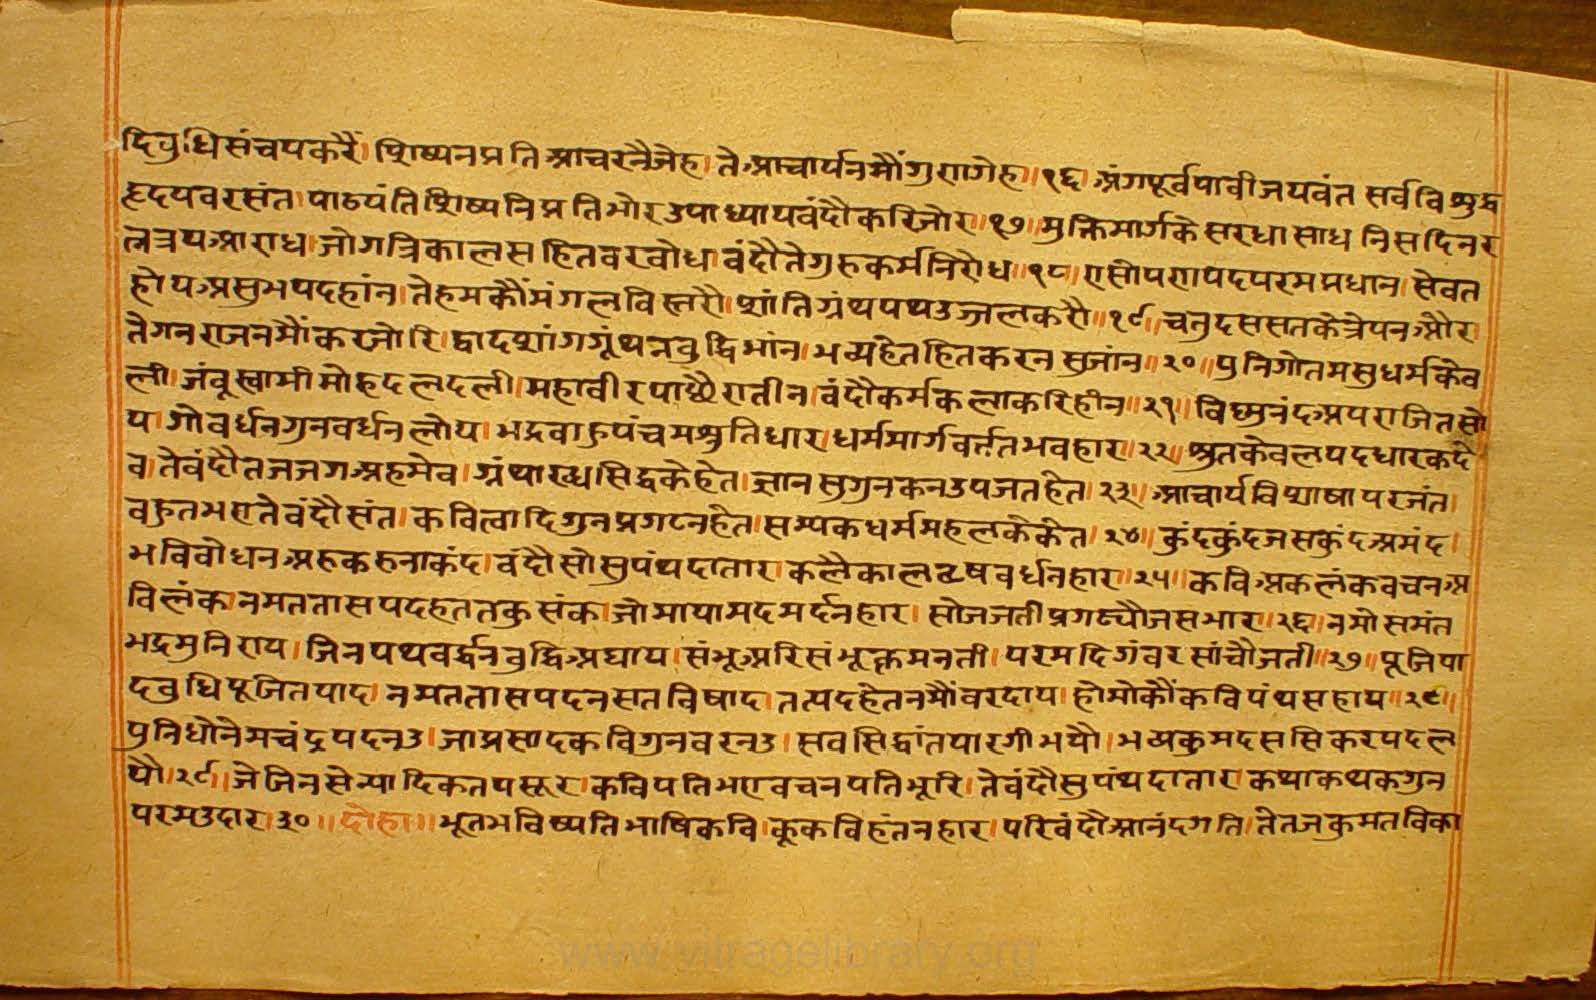 दिवुधिसंचयकरैं। शिष्यनप्रति आचरनैजेह। ते आचार्यनमौंगुरागेह॥१६॥ अंगपूर्वपावीजयवंत सर्वविशुद्ध
हृदयवरसंत। पाठयंतिशिष्यनिप्रतिभोर उपाध्यायवंदौकरिजोर॥१७॥ मुक्तिमार्गके सरधासाध निसदिनर
लत्रयआराध। जोगत्रिकालसहितवरबोध। वंदौतेगुरुकर्मनिरोध॥१८॥ एसीपरापदपरमप्रधान। सेवत
होयअसुभपदहांन। तेहमकौंमंगलविस्तरौ। शांतिग्रंथपथउज्जलकरौ॥१९॥ चतुदससतकेत्रेपनऔर।
तेगनराजनमौंकरजोरि। द्वादशांगगूंथनवुद्धिभांन। भव्यहेतहितकरनसुजांन॥२०॥ पुनिगोतमसुधर्मकेव
ली। जंवूस्वामीमोहदलदली। महावीरपाछैरातीन। वंदौकर्मकलाकरिहीन॥२१॥ विष्णुनंदअपराजितसो
य। गोवर्धनगुनवर्धनलोय। भद्रवाहुपंचमश्रुतिधार। धर्ममार्गवर्त्ततभवहार॥२२॥ श्रुतकेवलपदधारकदे
व। तेवंदौतजजगअहमेव। ग्रंथारब्धसिद्धकेहेत। ज्ञानसुगुनकनउपजतहेत।२३॥ आचार्यविशाषापरजंत।
वहुतभएतेवंदौसंत। कवित्वादिगुनप्रगटनहेत। सम्यकधर्ममहलकेकेत।२४॥ कुंदकुंदजसकुंदअमंद।
भविवोधनअरुकरुनाकंद। वंदौसोसुपंथदातार। कलैकालवृषवर्धनहार॥२५॥ कविअकलंकवचनअ
विलंक। नमततासपदहततकुसंक। जोमायामदमर्दनहार। सोजजतीप्रगट्यौजसभार॥२६॥ नमोसमंत
भद्रमुनिराय। जिनपथवर्द्धनवुद्धिअघाय। संभूअरिसंभूक्तमनती। परमदिगंवरसांचौजती॥२७॥ पूजिपा
दवुधिपूजितपाद। नमततासपदनसतविषाद। तत्पदहेतनमौंवरदाय। होमोकौंकविपंथसहाय॥२८॥
पुनिधोनेमचंद्रपदनउ। जाप्रसादकविगुनवरनउ। सवसिद्धांतपारगीभयौ। भव्यकुमदससिकरपदल
यौ।२९॥ जेजिनसेन्यादिकतपसूर। कविपतिभएवचनपतिभूरि। तेवंदौसुपंथदातार। कथाकथकगुन
परमउदार।३०॥ दोहा॥ भूतभविष्यतिभाषिकवि। कूकविहंतनहार। परिवंदौआनंदगति। तेतजकुमतविका
www.vitragelibrary.org